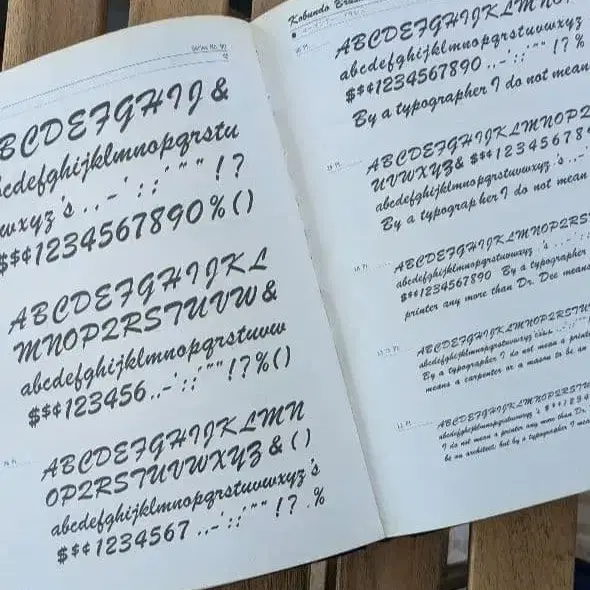 Series No. 90
BCDEFGHIJ &
bcdefghijklmnopqrstu
wxyz's . , - ' : ; ' " " ! ?
$$¢1234567890%()
ABCDEFGHIJKL
MNOPQRSTUVW&
abcdefghijklmnopqrstuvw
$$¢123456 . , - ' : ; ' " " ! ? % ( )
ABCDEFGHIJKLMN
OPQRSTUVWXYZ & ( )
abcdefghijklmnopqrstuvwxyz's
$$¢1234567 . , - ' : ; ' " " ! ? . %
Kobundo
ABCDEFGHIJKLMNO
abcdefghijklmnopqrstuvwxyz
$$¢1234567890 . , - ' : ; ' " " ! ? %
By a typographer I do not mean
ABCDEFGHIJKLMNOP
UVWXYZ& $$¢123456789
abcdefghijklmnopqrstuvwxyz's . , - '
By a typographer I do not mean
ABCDEFGHIJKLMNOPQRS
abcdefghijklmnopqrstuvwxyz 's . , - ' : ;
$$¢1234567890 By a typographer
printer any more than Dr. Dee means
ABCDEFGHIJKLMNOPQRSTUV
abcdefghijklmnopqrstuvwxyz
By a typographer I do not mean a printer
means a carpenter or a mason to be an
ABCDEFGHIJKLMNOPQRSTUV
abcdefghijklmnopqrstuvwxyz 's $$¢1234
I do not mean a printer any more than Dr.
be an architect; but by a typographer I mean